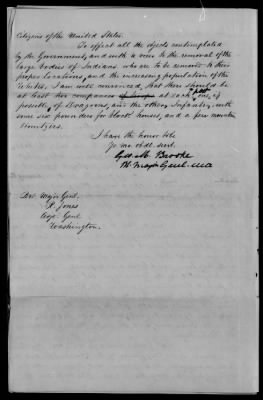 Citizens of the United States.
To effect all the objects contemplated
by the Government, and with a view to the removal of the
large bodies of Indians who are to be removed to their
proper locations, and the increasing population of the
Whites, I am well convinced, that there should be
at least two companies at each post, one, if
possible, of Dragoons, and the others, Infantry, with
some six pounders for block houses, and a few mountain
howitzers.
I have the honor to be
Yr. mo. obdt. servt.
Geo. M. Brooke
Bt. Majr Genl. USA
Bvt. Major Genl.
R. Jones
Adjt. Genl.
Washington.